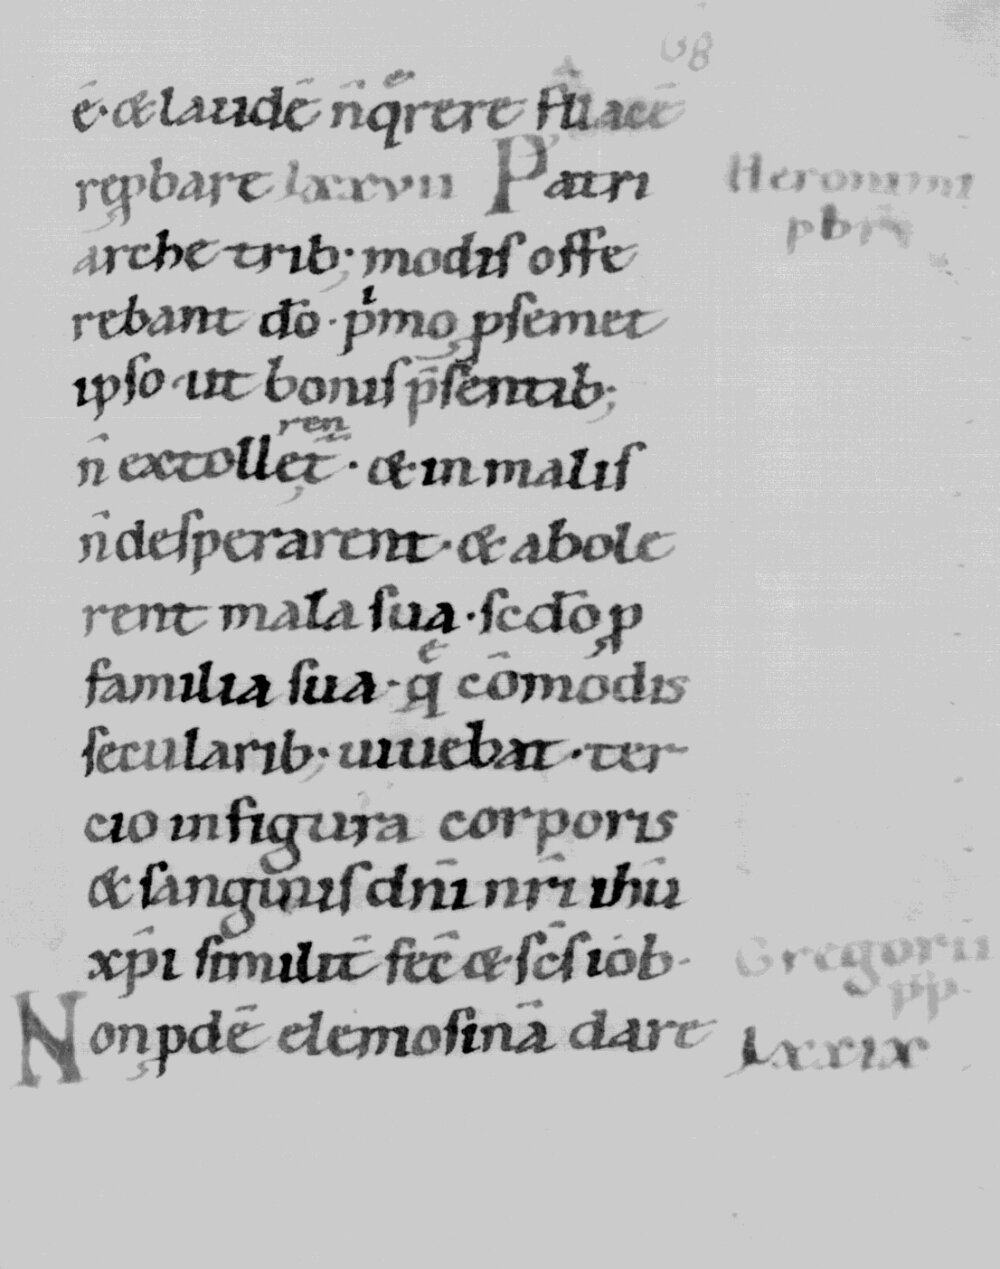 68
ē· & laudē n̄ q̄rere
rep̱bare lxxvii Patri
Heronimi
arche trib; modis offe
pbri
rebant dō· p̄mo ꝑ semet
ipso· ut bonis p̄sentib;
n̄ extolleret̄· & in malis
n̄ desperarent· & abole
rent mala sua· scdō ꝓ
familia sua· q̄ cōmodis
secularib; uiuebat· ter
cio in figura corporis
& sanguinis dn̄i nr̄i ihū
xp̄i similit̄ fec̄ & sc̄s iob·
Gregorii
pp·
Non ꝓdē elemosinā dare
lxxix